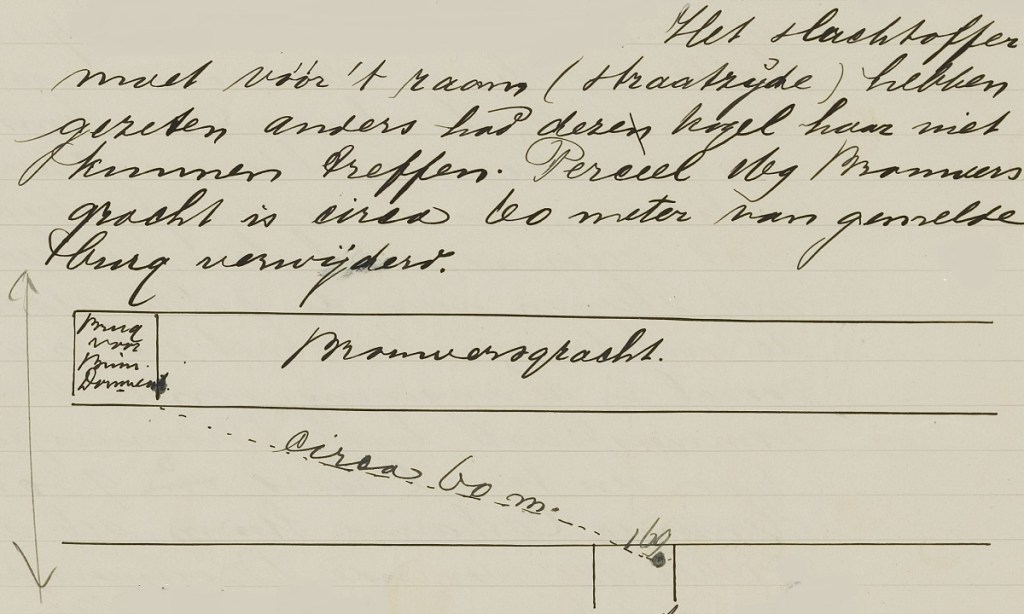 Het slachtoffer
moet vóór 't raam (straatzijde) hebben
gezeten anders had dezen kogel haar niet
kunnen treffen. Perceel 169 Brouwers
gracht is circa 60 meter van gemelde
brug verwijderd.
Brug
voor
Binn.
Brouwersgracht.
circa 60 m.
169